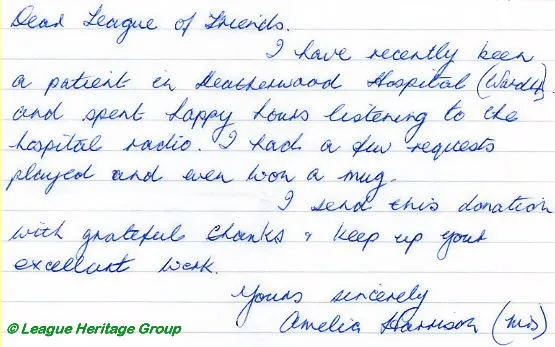 Dear League of Friends.
I have recently been
a patient in Heatherwood Hospital (Ward
and spent happy hours listening to the
hospital radio. I had a few requests
played and even won a mug.
I send this donation
with grateful thanks & keep up your
excellant work.
Yours sincerely
Amelia Harrison (Mrs)
© League Heritage Group